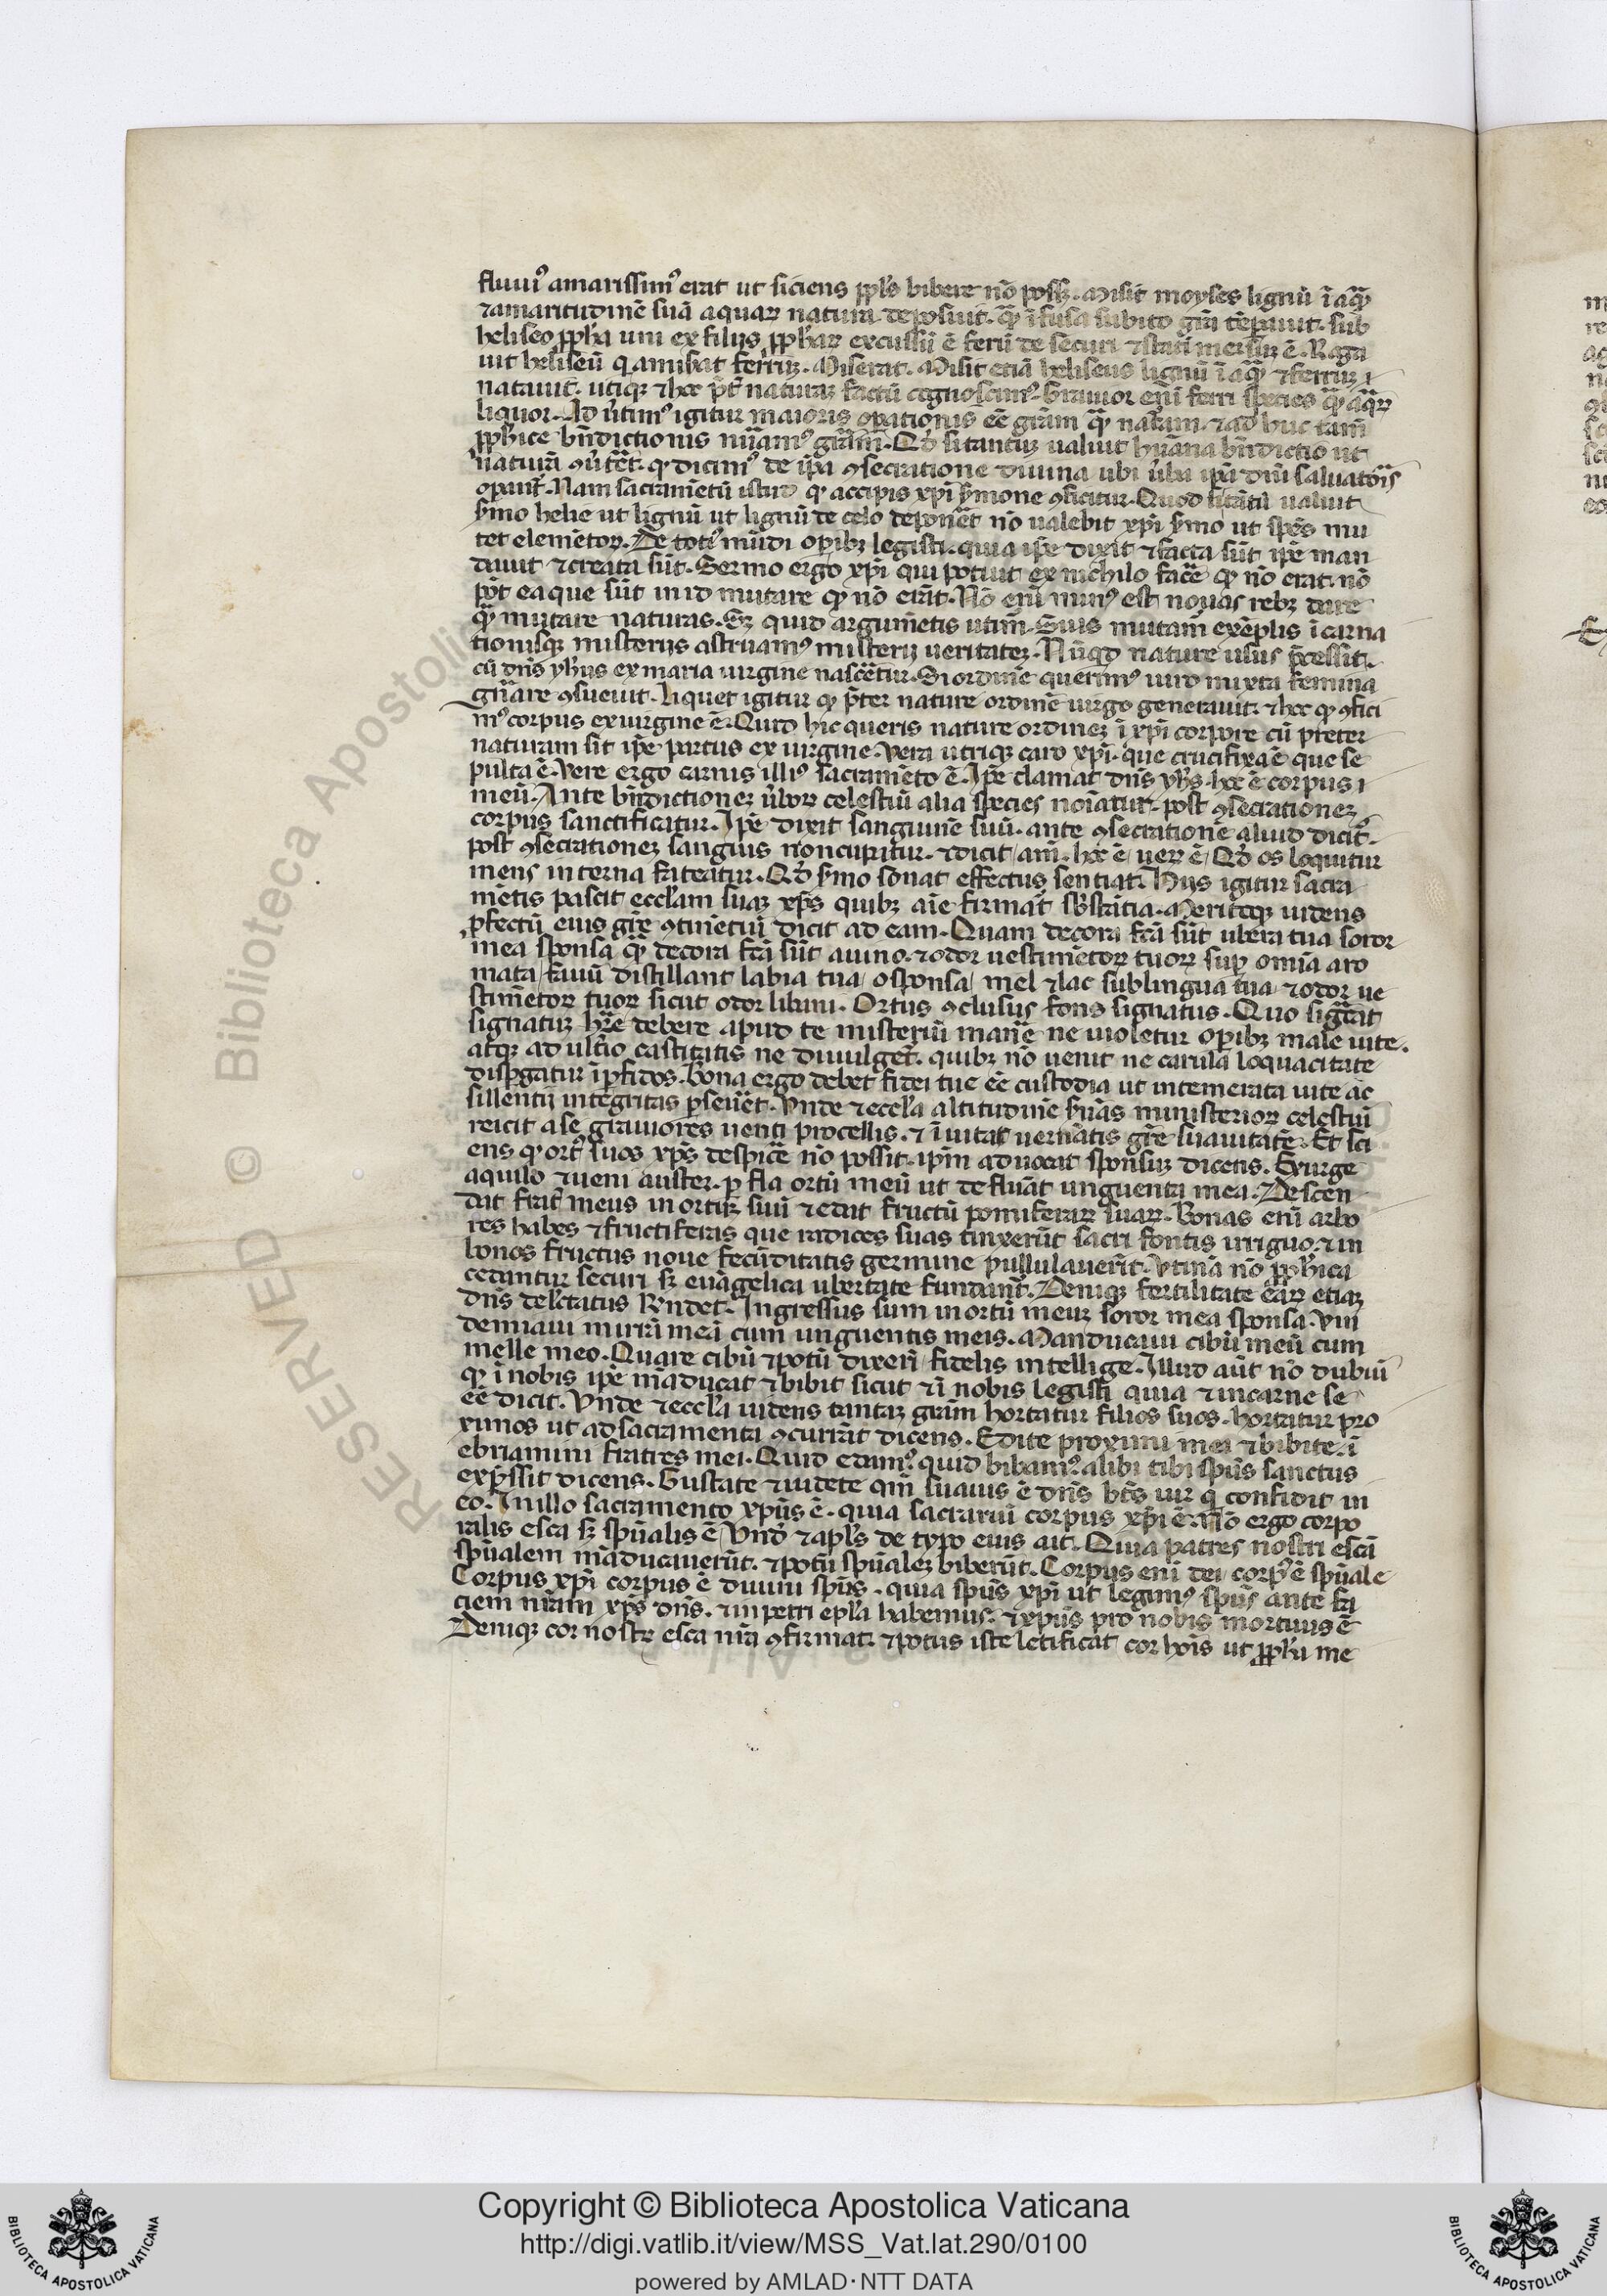 fluui⁹ amarissim⁹ erat ut siciens ppl̃s bibere nõ possꝫ. Misit moyses lignũ ĩ aqͣꝫ
⁊amaritudinẽ suã aquaꝝ natura deposuit. qͣꝫ ĩfusa subito gr̃a tẽpauit. sub
heliseo ppħa uni ex filijs ppħaꝝ excussũ ẽ ferũ de securi ⁊statĩ mersuꝫ ẽ. Roga
uit heliseũ q amisat ferruꝫ. Miserat. Misit etiã heliseus lignũ ĩ aqͣꝫ ⁊ferruꝫ
natauit. utiqꝫ ⁊hoc p̃t naturaꝫ factũ cognoscim⁹. Grauior eni ferri species qͣꝫ aqͣꝝ
liquor. Aduertim⁹ igitur maioris opationis eẽ gr̃am qͣꝫ nat̃am. ⁊ad huc tam̃
ppħice bñdictionis nũam⁹ gr̃am. Qd̃ si tantuꝫ ualuit huãna bñdictio ut
naturã ꝯũtẽt. qͥ dicim⁹ de ip̃a ꝯsecratione diuina ubi ũba ip̃a dñi saluatoris
opant̃. Nam sacramẽtũ istud qͩ accipis xp̃i s̃mone ꝯficitur. Quod si tãtũ ualuit
s̃mo helie ut lignũ ut lignũ de celo deponẽt nõ ualebit xp̃i s̃mo ut sp̃es mu
tet elemẽtoꝝ. De toti⁹ mũdi opibꝫ legisti. quia ip̃e dixit ⁊facta sũt ip̃e man
dauit ⁊creata sũt. Sermo ergo xp̃i qui potuit ex nichilo facẽ qͩ nõ erat. nõ
põt ea que sũt in id mutare qͩ nõ erãt. Nõ enĩ min⁹ est nouas rebꝫ dare
qͣꝫ mutare naturas. Sꝫ quid argumẽtis utim̃. Suis mutam̃ exẽplis ĩcarna
tionisqꝫ misterijs astruam⁹ misterij ueritateꝫ. Nũqͥd nature usus p̃cessit.
cũ dñs yħus ex maria uirgine nascẽtur. Si ordinẽ querim⁹ uiro mixta femina
gñare ꝯsueuit. Liquet igitur qͩ p̃ter nature ordinẽ uirgo generauit. ⁊hoc qͩ ꝯfici
m⁹ corpus ex uirgine ẽ. Quid hic queris nature ordineꝫ ĩ xp̃i corpore cũ preter
naturam sit ip̃e partus ex uirgine. Vera utriqꝫ caro xp̃i. que crucifixa ẽ que se
pulta ẽ. Vere ergo carnis illi⁹ sacramẽto ẽ. Ip̃e clamat dñs yħs. hoc ẽ corpus
meũ. Ante bñdictioneꝫ ũboꝝ celestiũ alia species noĩatur. post ꝯsecrationeꝫ
corpus sanctificatur. Ip̃e dixit sanguinẽ suũ. ante ꝯsecrationẽ aliud dicit̃.
post ꝯsecrationeꝫ sanguis noncupatur. ⁊dicit am̃. hoc ẽ ueꝝ ẽ. Qd̃ os loquitur
mens interna fateatur. Qd̃ s̃mo sonat effectus sentiat. Hijs igitur sacra
mẽtis pascit eccl̃am suaꝫ xp̃s quibꝫ aĩe firmat̃ sb̃stãtia. Meritoqꝫ uidens
ꝓfectũ eius gr̃e ꝯtinẽtiũ dicit ad eam. Quam decora fc̃a sũt ubera tua soror
mea sponsa qͣꝫ decora fc̃a sũt auino. ⁊odor uestimẽtoꝝ tuoꝝ sup omĩa aro
mata. fauũ distillant labia tua o sponsa mel ⁊lac sub lingua tua ⁊odor ue
stimẽtoꝝ tuoꝝ sicut odor libani. Ortus ꝯclusus fons signatus. Quo sigͨat
signatuꝫ hr̃e debere apud te misteriũ manẽ ne uioletur opibꝫ male uite.
atqꝫ adultio castitatis ne diuulget̃. quibꝫ nõ uenit ne garula loquacitate
dispgatur ĩpfidos. Bona ergo debet fidei tue eẽ custodia ut intemerata uite ac
sillentij integritas pseuẽt. Vnde ⁊eccl̃a altitudinẽ s̃uãs ministerioꝝ celestiũ
reicit a se grauiores uenti procellis. ⁊ ĩuitat uernãtis gr̃e suauitatẽ. Et sci
ens qͩ ort⁹ suos xp̃s despicẽ nõ possit. ip̃m aduocat sponsuꝫ dicens. Exurge
aquilo ⁊ueni auster. pfla ortũ meũ ut defluãt unguenta mea. Descen
dat frat̃ meus in ortuꝫ suũ ⁊edat fructũ pomiferaꝝ suaꝝ. Bonas enĩ arbo
res habes ⁊fructiferas que radices suas tinxerũt sacri fontis irriguo. ⁊in
bonos fructus noue fecũditatis germine pullulauerũt. Vtinã nõ ppħica
cedantur securi sꝫ euãgelica ubertate fundant̃. Deniqꝫ fertilitate eaꝝ etiaꝫ
dñs delectatus rñdet. Ingressus sum in ortũ meuꝫ soror mea sponsa. Vin
demiaui mirrã meã cum unguentis meis. Manducaui cibũ meũ cum
melle meo. Quare cibũ ⁊potũ dixeri fidelis intellige. Illud aũt nõ dubiũ
qͩ ĩ nobis ip̃e mãducat ⁊bibit sicut ⁊ĩ nobis legisti quia ⁊incarne se
eẽ dicit. Vnde ⁊eccl̃a uidens tantaꝫ gr̃am hortatur filios suos. hortatur pro
ximos ut ad sacramenta ꝯcurrãt dicens. Edite proximi mei ⁊bibite. ĩ
ebriamini fratres mei. Quid edam⁹ quid bibam⁹. alibi tibi spũs sanctus
exp̃ssit dicens. Gustate ⁊uidete qm̃ suauis ẽ dñs. bt̃s uir qͥ confidit in
eo. In illo sacramento xpũs ẽ. quia sacrarui corpus xp̃i ẽ. Nõ ergo corpo
ralis esca sꝫ spũalis ẽ. Vnd̃ ⁊apl̃s de typo eius ait. Quia patres nostri escã
spũalem mãducauerũt. ⁊potũ spũaleꝫ biberũt. Corpus enĩ dei corp⁹ ẽ spũale
Corpus xp̃i corpus ẽ diuini spũs. quia spũs xp̃i ut legim⁹ spũs ante fa
ciem nr̃am xp̃s dñs. ⁊in petri epl̃a habemus. ⁊xpũs pro nobis mortuus ẽ
Deniqꝫ cor nostꝝ esca nr̃a ꝯfirmat. ⁊potus iste letificat cor hoĩs ut ppħa me
RESERVED © Biblioteca Apostolica
Copyright © Biblioteca Apostolica Vaticana
http://digi.vatlib.it/view/MSS_Vat.lat.290/0100
powered by AMLAD·NTT DATA
BIBLIOTECA APOSTOLICA VATICANA
BIBLIOTECA APOSTOLICA VATICANA